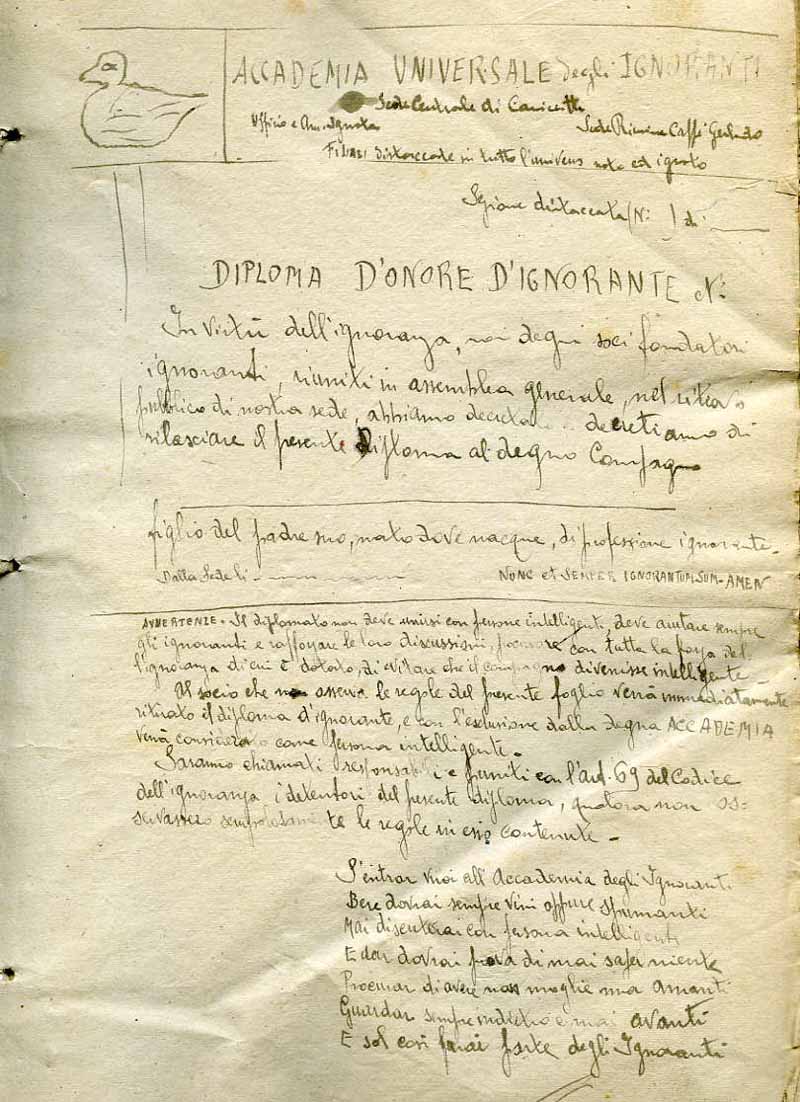 ACCADEMIA UNIVERSALE degli IGNORANTI
Sede Centrale di Canicattì
Ufficio e Am. Ignota
Sede Riunione Caffè
FILIALI distaccate in tutto l'universo noto ed ignoto
Sezione distaccata (N: ) di
DIPLOMA D'ONORE D'IGNORANTE N:
In virtù dell'ignoranza, noi degni soci fondatori
ignoranti, riuniti in assemblea generale, nel ritrovo
pubblico di nostra sede, abbiamo decretato .. decretiamo di
rilasciare il presente Diploma al degno Compagno
figlio del padre suo, nato dove nacque, di professione ignorante -
Dalla Sede li -
NUNC et SEMPER IGNORANTUM SUM - AMEN
AVVERTENZE - Il diplomato non deve unirsi con persone intelligenti, deve aiutare sempre
gli ignoranti e rafforzare le loro discussioni, procurare con tutta la forza del
l'ignoranza di cui è dotato, di evitare che il compagno divenisse intelligente -
Al socio che non osserva le regole del presente foglio verrà immediatamente
ritirato il diploma d'ignorante, e con l'esclusione dalla degna ACCADEMIA
verrà considerato come persona intelligente -
Saranno chiamati responsabili e puniti con l'art. 69 del Codice
dell'ignoranza i detentori del presente diploma, qualora non os=
servassero le regole in esso contenute -
S'entrar vuoi all'Accademia degli Ignoranti
Bere dovrai sempre vini oppure spumanti
Mai discuterai con persona intelligente
E dar dovrai prova di mai saper niente
Procurar di avere non moglie ma amanti
Guardar sempre indietro e mai avanti
E sol così farai parte degli Ignoranti